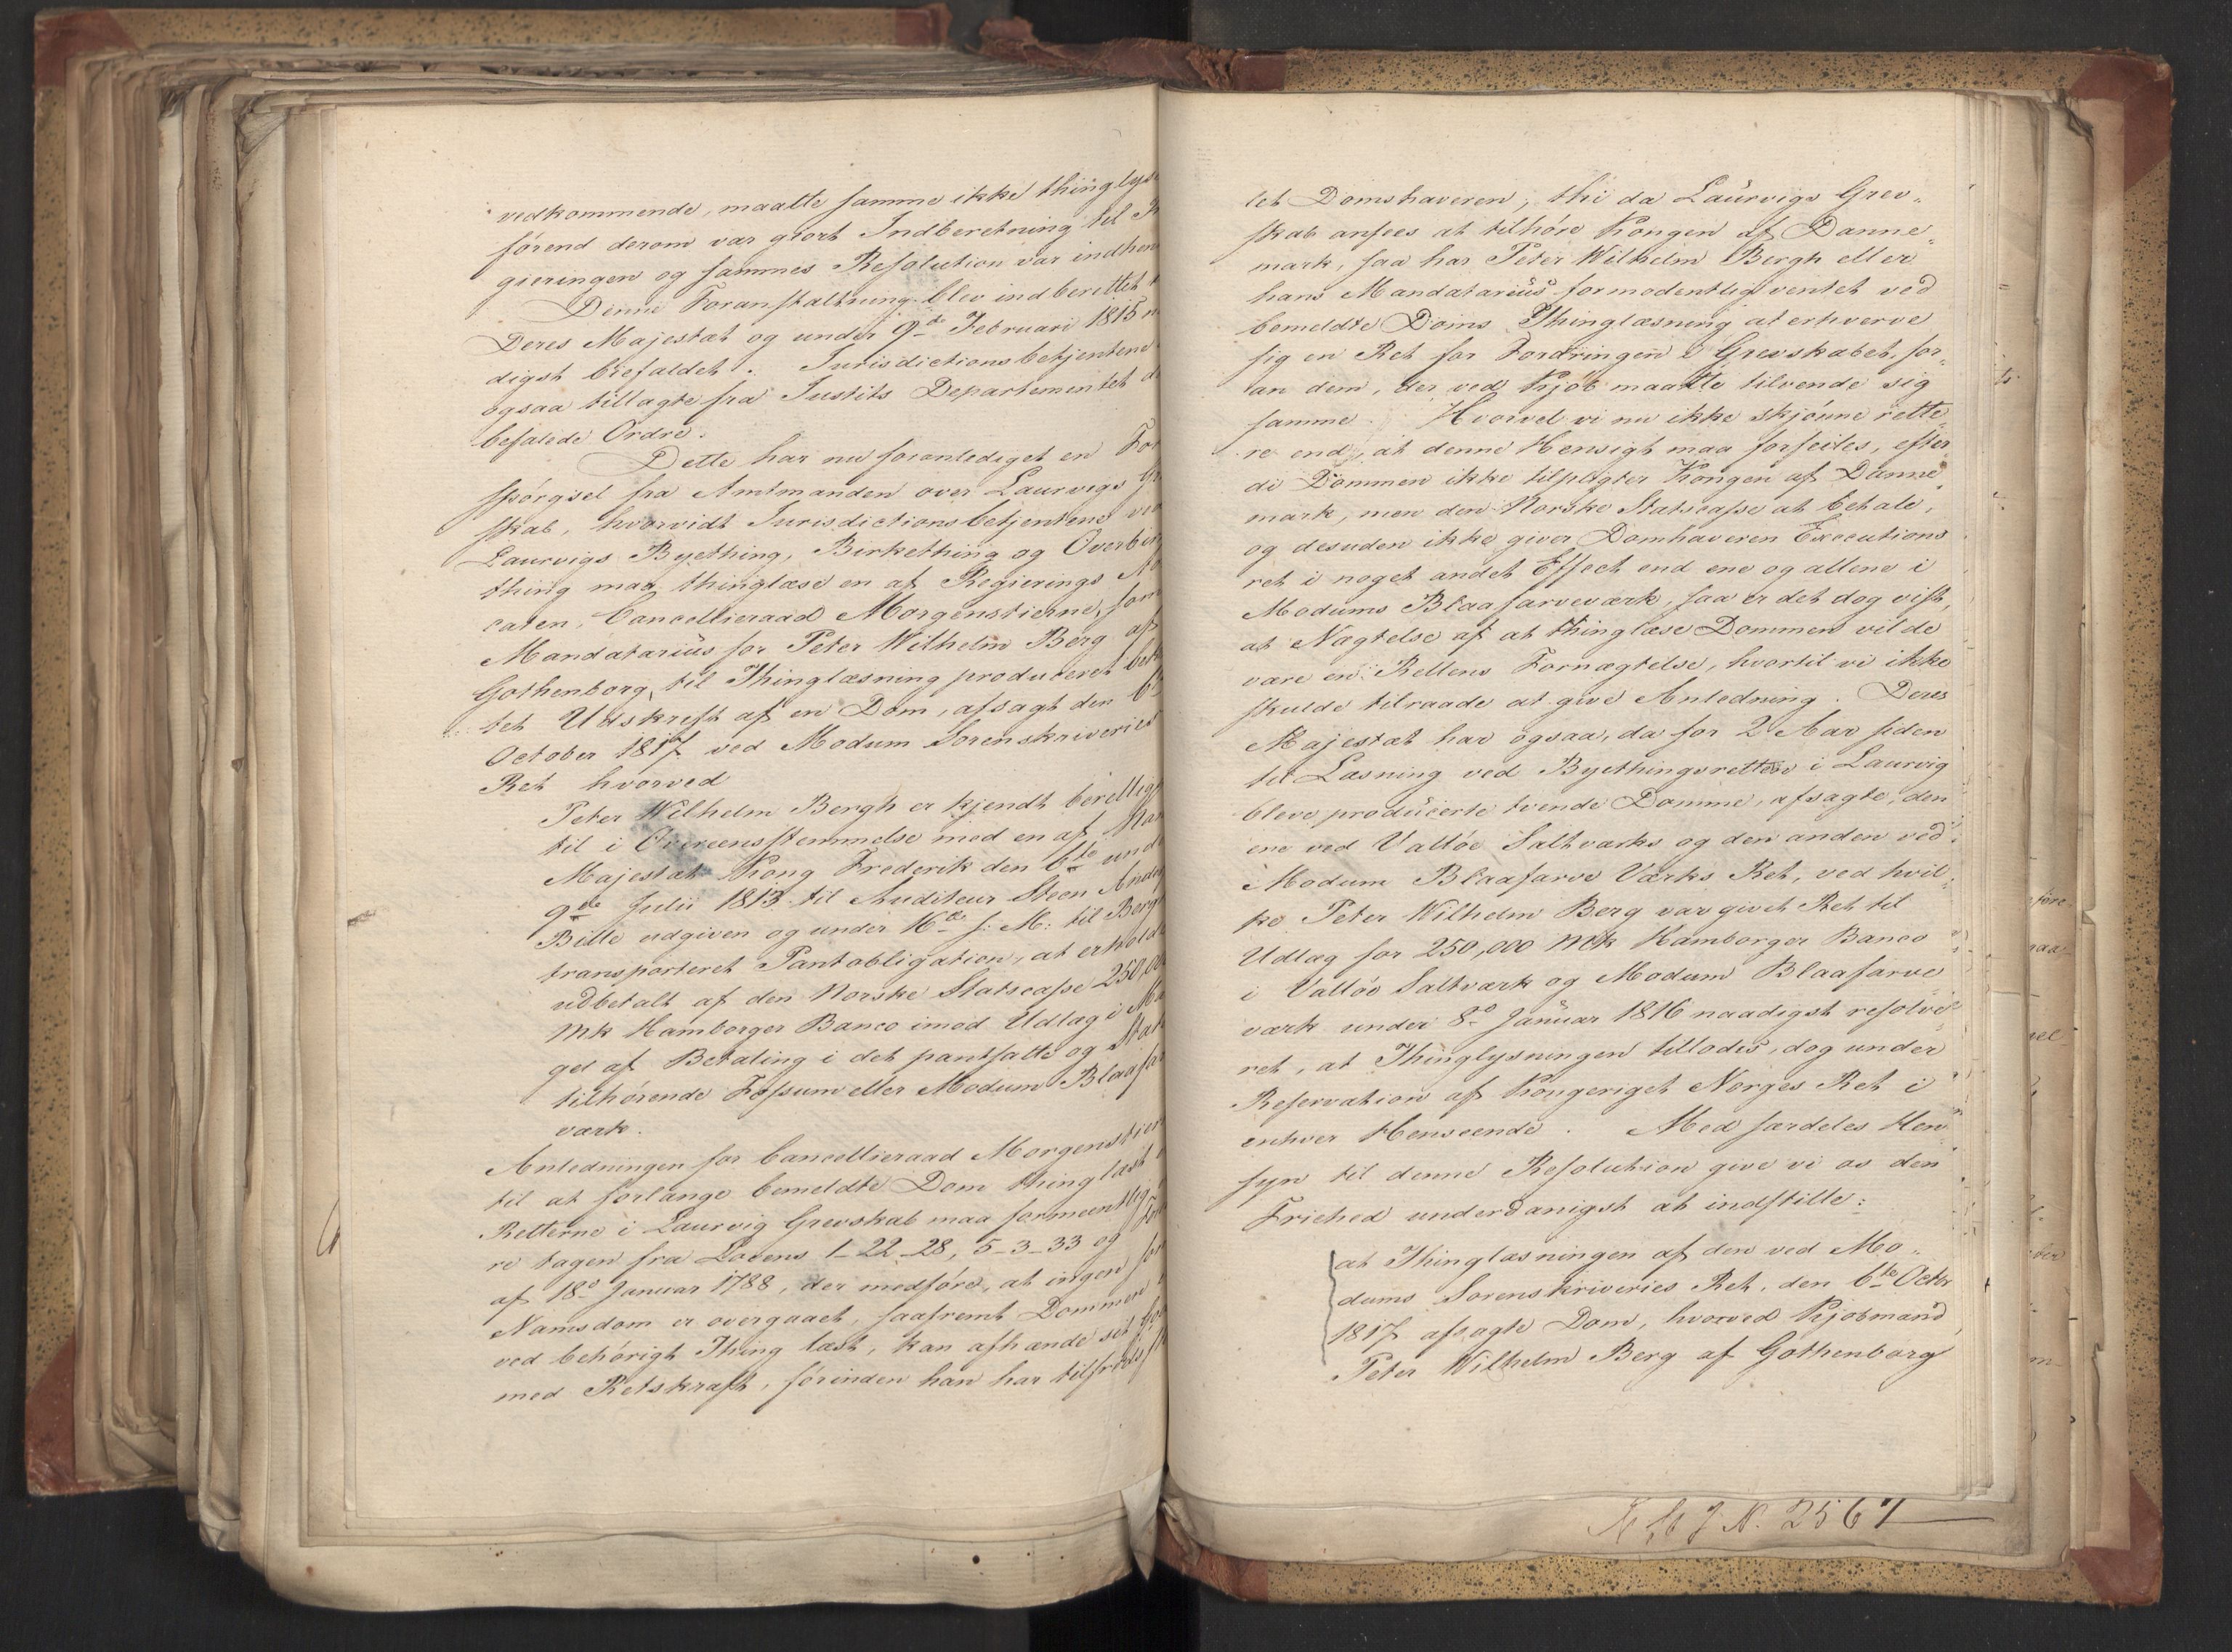 vedkommende, maatte samme ikke thinglys
förend derom var giort Indberetning til
gieringen og sammes Resolution var indhen
Denne Foranstaltning blev indberettet
Deres Majestæt og under 9de Februari 1815 n
digst bifaldet. Jurisdictionsbetjentene
ogsaa tillagte fra Justits Departementet d
befalede Ordre.
Dette har nu foranlediget en For
spörgsel fra Amtmanden over Laurvigs Gr
skab, hvorvidt Jurisdictionsbetjentene ved
Laurvigs Byething, Birkething og Overbir
thing maa thinglæse en af Regierings Ad
caten, Cancellieraad Morgenstierne, som
Mandatarius for Peter Wilhelm Berg af
Gothenborg, til Thinglæsning produceret bek
tet Udskrift af en Dom, afsagt den 6te
October 1817 ved Modum Sorenskriveries
Ret hvorved
Peter Wilhelm Bergh er kjendt berettig
til i Overeensstemmelse med en af Hans
Majestæt Kong Frederik den 6te und
9de Julii 1813 til Auditeur Steen Ander
Bille udgiven og under 16de s: M: til Bergh
transporteret Pantobligation, at erholde
udbetalt af den Norske Statscasse 250,000
Mk Hamborger Banco imod Udlag i Ma
gel af Betaling i det pantsatte og Stat
tilhörende Fossum eller Modum Blaafar
værk.
Anledningen for Cancellieraad Morgenstier
til at forlange bemeldte Dom thinglæst
Retterne i Laurvig Grevskab maa formeentlig
re tagen fra Lovens 1-22-28, 5-3-33 og For
af 18de Januar 1788, der medföre, at ingen
Namsdom er overgaaet, saafremt Dommen
ved behörigt Thing læst, kan afhænde sit
med Retskraft, förinden han har tilfreds
let Domshaveren; thi da Laurvigs Grev„
skab ansees at tilhöre Kongen af Danne„
mark, saa har Peter Wilhelm Bergh eller
hans Mandatarius formodentlig ventet ved
bemeldte Doms Thinglæsning at erhverve
sig en Ret for Fordringen i Grevskabet, for„
an dem, der ved Kjöb maatte tilvende sig
samme. Hvorvel vi nu ikke skjönne rette„
re end, at denne Hensigt maa forfeiles, efter„
di Dommen ikke tilpligter Kongen af Danne„
mark, men den Norske Statscasse at betale,
og desuden ikke giver Domhaveren Executions
ret i noget andet Effect end ene og allene i
Modums Blaafarveværk, saa er det dog vist,
at Nægtelse af at thinglæse Dommen vilde
være en Rettens Fornægtelse, hvortil vi ikke
skulde tilraade at give Anledning. Deres
Majestæt har ogsaa, da for 2 Aar siden
til Læsning ved Byethingsretten i Laurvig
bleve producerte tvende Domme, afsagte, den
ene ved Vallöe Saltværks og den anden ved
Modum Blaafarve Værks Ret, ved hvil„
ke Peter Wilhelm Berg var givet Ret til
Udlag for 250,000 Mk Hamborger Banco
i Vallöe Saltværk og Modum Blaafarve
værk under 8de Januar 1816 naadigst resolve„
ret, at Thinglysningen tillodes, dog under
Reservation af Kongeriget Norges Ret i
enhver Henseende. Med særdeles Hen„
syn til denne Resolution give vi os den
Friehed underdanigst at indstille:
at Thinglæsningen af den ved Mo„
dums Sorenskriveries Ret, den 6te Octbr
1817 afsagte Dom, hvorved Kjöbmand
Peter Wilhelm Berg af Gothenborg
J. N. 2567